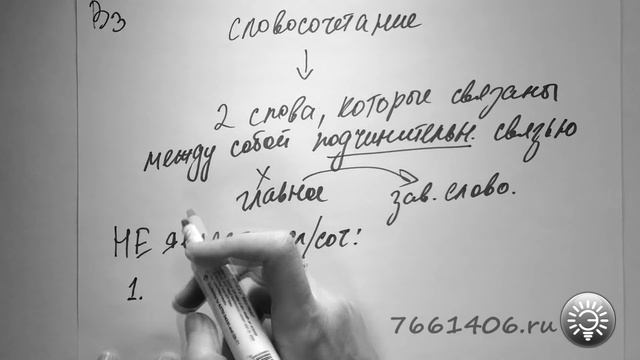 В3
словосочетание
2 слова, которые связаны
между собой подчинительн. связью
главное зав. слово.
НЕ сл/соч:
1.
7661406.ru